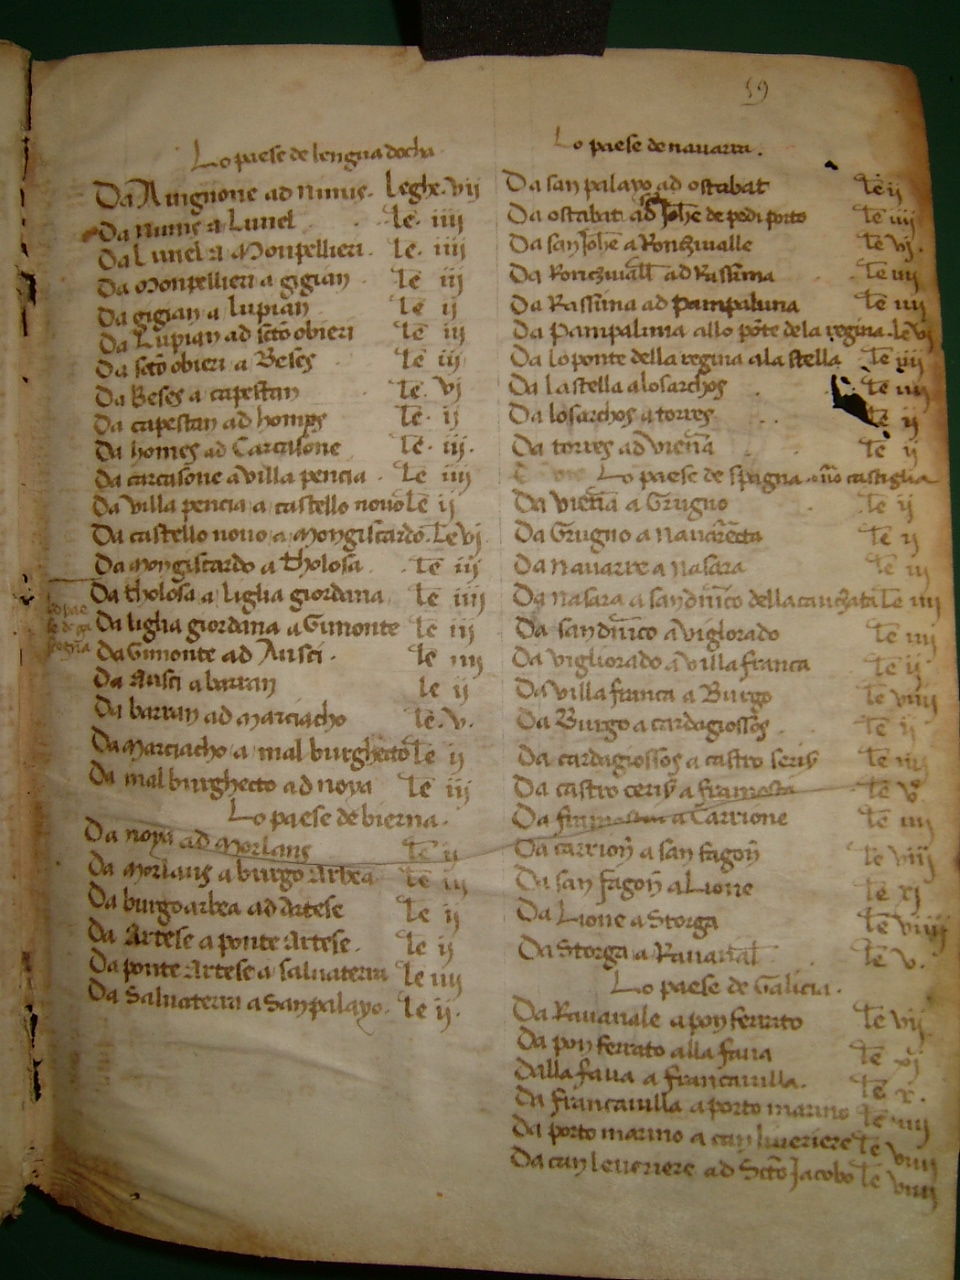 59
Lo paese de lengua docha
Da Auignone ad nimis. leghe. vij
Da nimis a Lunel le. iiij
Da Lunel a Monpellieri. le. iiij
Da Monpellieri a gigian le iij
Da gigian a lupian le ij
Da Lupian ad scto obieri le iij
Da scto obieri a Beses le iij
Da Beses a capestan le. vj
Da capestan ad homps le. ij
Da homes ad Carcasone le. iij.
Da carcasone a villa pencia le iiij
Da villa pencia a castello nouo le ij
Da castello nouo a Mongiscardo. le vj
Da Mongiscardo a tholosa le iij
Da tholosa a liglia giordana le iiij
Da liglia giordana a Gimonte le iij
Da Gimonte ad Ausci. le iiij
Da Ausci a barran le ij
Da barran ad marciacho le. v.
Da Marciacho a mal burghecto le ij
Da mal burghecto ad noya le iij
Lo paese de bierna.
Da noya ad Morlans le ij
Da Morlans a burgo arbea le iij
Da burgo arbea ad Artese le ij
Da Artese a ponte artese. le ij
Da ponte artese a saluaterra le iiij
Da Saluaterra a Sanpalayo. le ij.
Lo paese de nauarra.
Da san palayo ad ostabat le ij
Da ostabat ad Johe de pedi porto le iiij
Da san Johe a Ronzualle le vj.
Da Ronzuall ad Rasuna le iiij
Da Rasuna ad Pampaluna le iiij
Da Pampaluna allo pote dela regina. le vj
Da lo ponte della regina a la stella le iiij
Da la stella a losarchos le iiij
Da losarchos a torres le ij
Da torres ad viena le ij
Lo paese de spagna castiglia
Da viena a Grugno le ij
Da Grugno a le ij
Da Nauarre a Nasara le iij
Da Nasara a san dnico della le iiij
Da san dnico a viglorado le iiij
Da vigliorado a villa franca le ij
Da villa franca a Burgo le viiij
Da Burgo a cardagiossos le ij
Da cardagiossos a castro seris le iiij
Da castro ceris a framesta le v.
Da framesta a Carrione le iiij
Da carrion a san fagon le viij
Da san fagon a Lione le xj
Da Lione a Storga le viiij
Da Storga a Rauanal le v.
Lo paese de Galicia.
Da Rauanale a pon ferrato le vij
Da pon ferrato alla faua le xj
Dalla faua a francauilla. le x.
Da francauilla a porto marino le iiij
Da porto marino a le viiij
Da ad Scto Jacobo le viiij